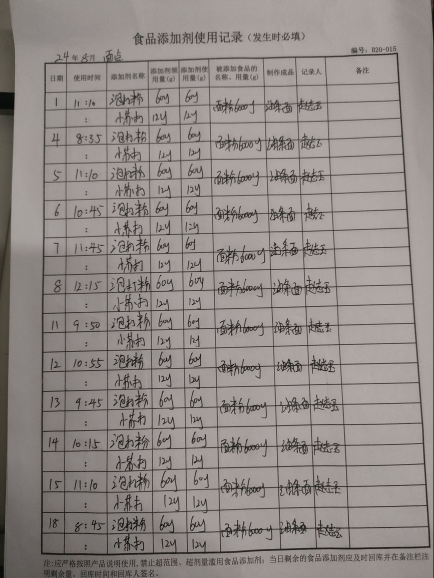 食品添加剂使用记录（发生时必填）
24年8月 面点
编号：020-015
日期 使用时间 添加剂名称 添加剂领用量(g) 添加剂使用量(g) 被添加食品的名称、用量(g) 制作成品 记录人 备注
1 11:10 泡打粉 60g 60g 面粉6000g 油条面
: 小苏打 12g 12g
4 8:35 泡打粉 60g 60g 面粉6000g 油条面
: 小苏打 12g 12g
5 11:10 泡打粉 60g 60g 面粉6000g 油条面
: 小苏打 12g 12g
6 10:45 泡打粉 60g 60g 面粉6000g 油条面
: 小苏打 12g 12g
7 11:45 泡打粉 60g 60g 面粉6000g 油条面
: 小苏打 12g 12g
8 12:15 泡打粉 60g 60g 面粉6000g 油条面
: 小苏打 12g 12g
11 9:50 泡打粉 60g 60g 面粉6000g 油条面
: 小苏打 12g 12g
12 10:55 泡打粉 60g 60g 面粉6000g 油条面
: 小苏打 12g 12g
13 9:45 泡打粉 60g 60g 面粉6000g 油条面
: 小苏打 12g 12g
14 10:15 泡打粉 60g 60g 面粉6000g 油条面
: 小苏打 12g 12g
15 11:10 泡打粉 60g 60g 面粉6000g 油条面
: 小苏打 12g 12g
18 8:45 泡打粉 60g 60g 面粉6000g 油条面
: 小苏打 12g 12g
注:应严格按照产品说明使用,禁止超范围、超剂量滥用食品添加剂；当日剩余的食品添加剂应及时回库并在备注栏注
明剩余量、回库时间和回库人签名。